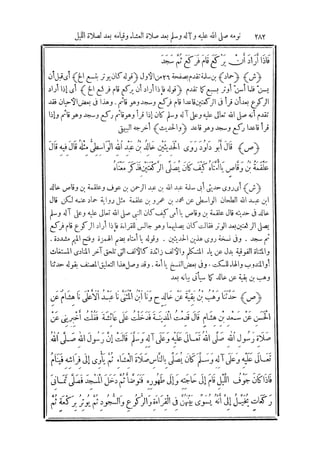 ٢٨٢ نومه صلى الله عليه وآله وسلم بعد صلاة العشاء وقيامه بعد لصلاة الليل
فَإِذَا أَرَادَ أَنْ يَرْكَعَ قَامَ فَرَكَعَ ثُمَّ سَجَدَ
﴿ش﴾ ﴿حماد﴾ بن سلمة تقدم بصفحة ٢٦ من الأول ﴿قوله كان يوتر بتسع الخ﴾ أى قبل أن
يسن فلما أسن أوتر بسبع كما تقدم ﴿قوله فإذا أراد أن يركع قام فركع الخ﴾ أى إذا أراد
الركوع بعد أن قرأ فى الركعتين قاعدا قام فركع وسجد وهو قائم. وهذا فى بعض الأحيان فقد
تقدم أنه صلى الله تعالى عليه وعلى آله وسلم كان إذا قرأ وهو قائم ركع وسجد وهو قائم وإذا
قرأ قاعدا ركع وسجد وهو قاعد ﴿والحديث﴾ أخرجه البيهقى
﴿ص﴾ قَالَ أَبُو دَاوُدَ رَوَى الْحَدِيثَيْنِ خَالِدُ بْنُ عَبْدِ اللهِ الْوَاسِطِىُّ مِثْلَهُ قَالَ فِيهِ قَالَ
عَلْقَمَةُ بْنُ وَقَّاصٍ يَا أُمَّتَاهُ كَيْفَ كَانَ يُصَلِّى الرَّكْعَتَيْنِ فَذَكَرَ مَعْنَاهُ
﴿ش﴾ أى روى حديثى أبى سلمة عبد الله بن عبد الرحمن بن عوف وعلقمة بن وقاص خالد
ابن عبد الله الطحان الواسطى عن محمد بن عمرو بن علقمة مثل رواية حماد عنه لكن قال
خالد فى حديثه قال علقمة بن وقاص يا أمى كيف كان النبى صلى الله تعالى عليه وعلى آله وسلم
يصلى الركعتين بعد الوتر فقالت كان يصليهما وهو جالس للقراءة فإذا أراد الركوع قام فركع
ثم سجد. وفى نسخة روى هذين الحديثين. وقوله يا أمتاه بضم الهمزة وفتح الميم مشددة.
والمثناة الفوقية بدل عن ياء المتكلم والألف زائدة كالألف التى تلحق آخر المنادى المستغاث
أو المندوب والهاء للسكت. وفى بعض النسخ يا أمه. وقد وصل هذا التعليق المصنف بقوله حدثنا
وهب بن بقية عن خالد كما سيأتى بيانه بعد
﴿ص﴾ حَدَّثَنَا وَهْبُ بْنُ بَقِيَّةَ عَنْ خَالِدٍ ح وَنَا ابْنُ الْمُثَنَّى نَا عَبْدُ الْأَعْلَى نَا هِشَامٌ عَنِ
الْحَسَنِ عَنْ سَعْدِ بْنِ هِشَامٍ قَالَ قَدِمْتُ الْمَدِينَةَ فَدَخَلْتُ عَلَى عَائِشَةَ فَقُلْتُ أَخْبِرِينِى عَنْ
صَلَاةِ رَسُولِ اللهِ صَلَّى اللهُ تَعَالَى عَلَيْهِ وَعَلَى آلِهِ وَسَلَّمَ قَالَتْ إِنَّ رَسُولَ اللهِ صَلَّى اللهُ
تَعَالَى عَلَيْهِ وَعَلَى آلِهِ وَسَلَّمَ كَانَ يُصَلِّى بِالنَّاسِ صَلَاةَ الْعِشَاءِ ثُمَّ يَأْوِى إِلَى فِرَاشِهِ فَيَنَامُ
فَإِذَا كَانَ جَوْفُ اللَّيْلِ قَامَ إِلَى حَاجَتِهِ وَإِلَى طَهُورِهِ فَتَوَضَّأَ ثُمَّ دَخَلَ الْمَسْجِدَ فَصَلَّى ثَمَانِىَ
رَكَعَاتٍ يُخَيَّلُ إِلَىَّ أَنَّهُ يُسَوِّى بَيْنَهُنَّ فِى الْقِرَاءَةِ وَالرُّكُوعِ وَالسُّجُودِ ثُمَّ يُوتِرُ بِرَكْعَةٍ ثُمَّ